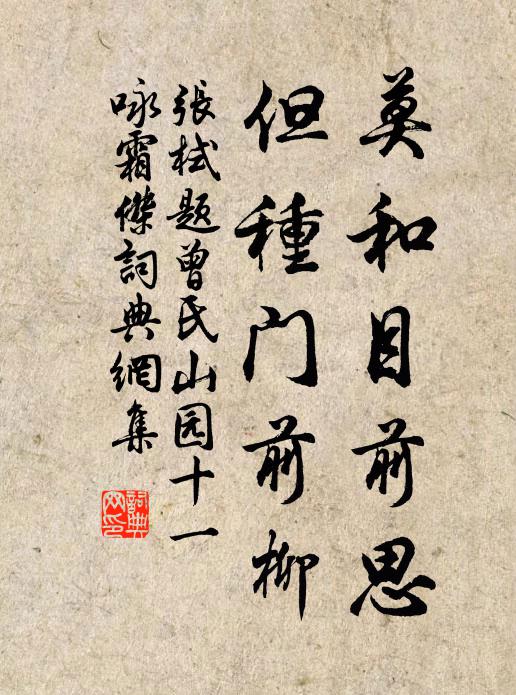 莫和目前思
但種门前柳
張栻题曾氏山园十一
咏霜傑詞典網集
詞典网印